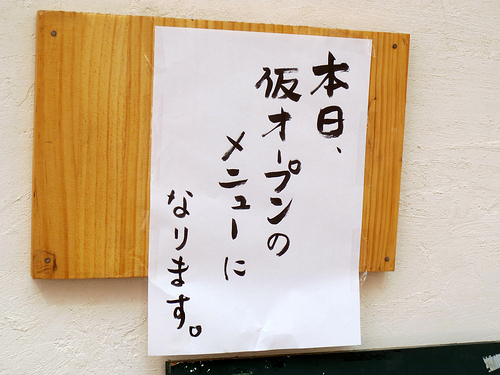 本日、
仮オープンの
メニューに
なります。